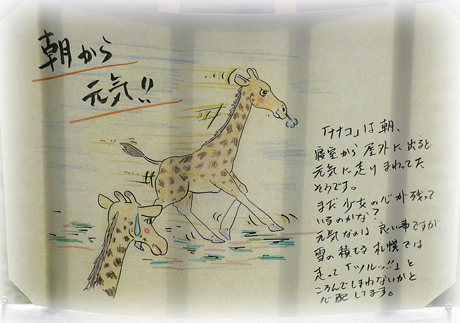 朝から
元気!!
「ナナコ」は朝、
寝室から屋外に出ると
元気に走りまわってた
そうです。
まだ少女の心が残って
いるのかな?
元気なのは良い事ですが
雪の積もる札幌では
走って「ツルッ!!」と
ころんでしまわないかと
心配してます。